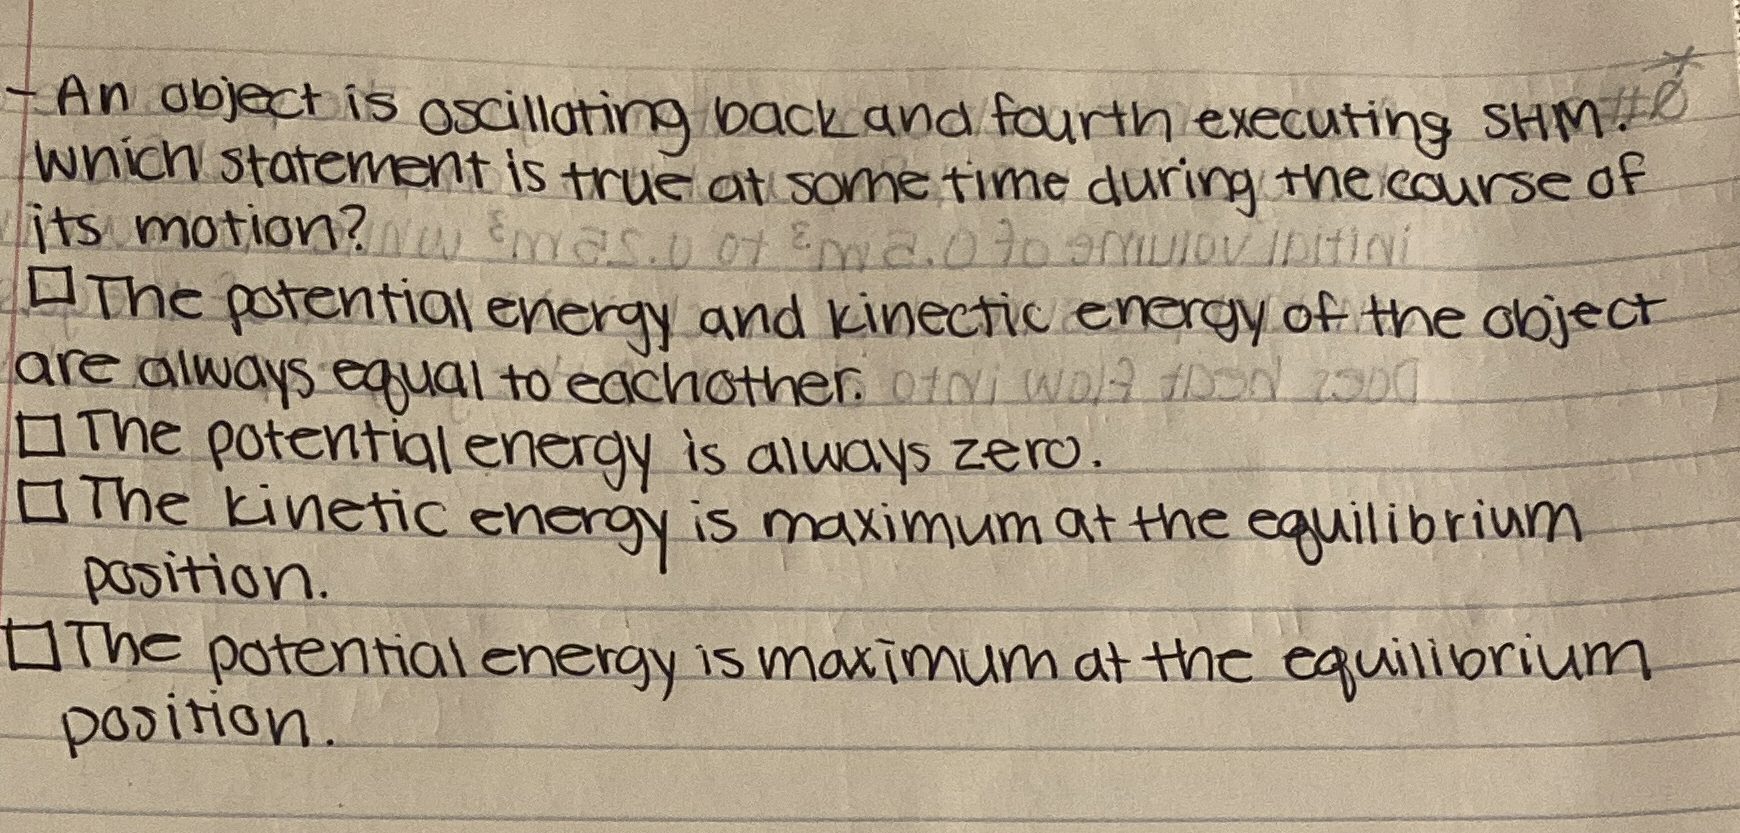 - An object is oscillating back and fourth executing SHM.
Which statement is true at some time during the course of
its motion?
□ The potential energy and kinectic energy of the object
are always equal to eachother.
□ The potential energy is always zero.
□ The kinetic energy is maximum at the equilibrium
position.
□ The potential energy is maximum at the equilibrium
position.